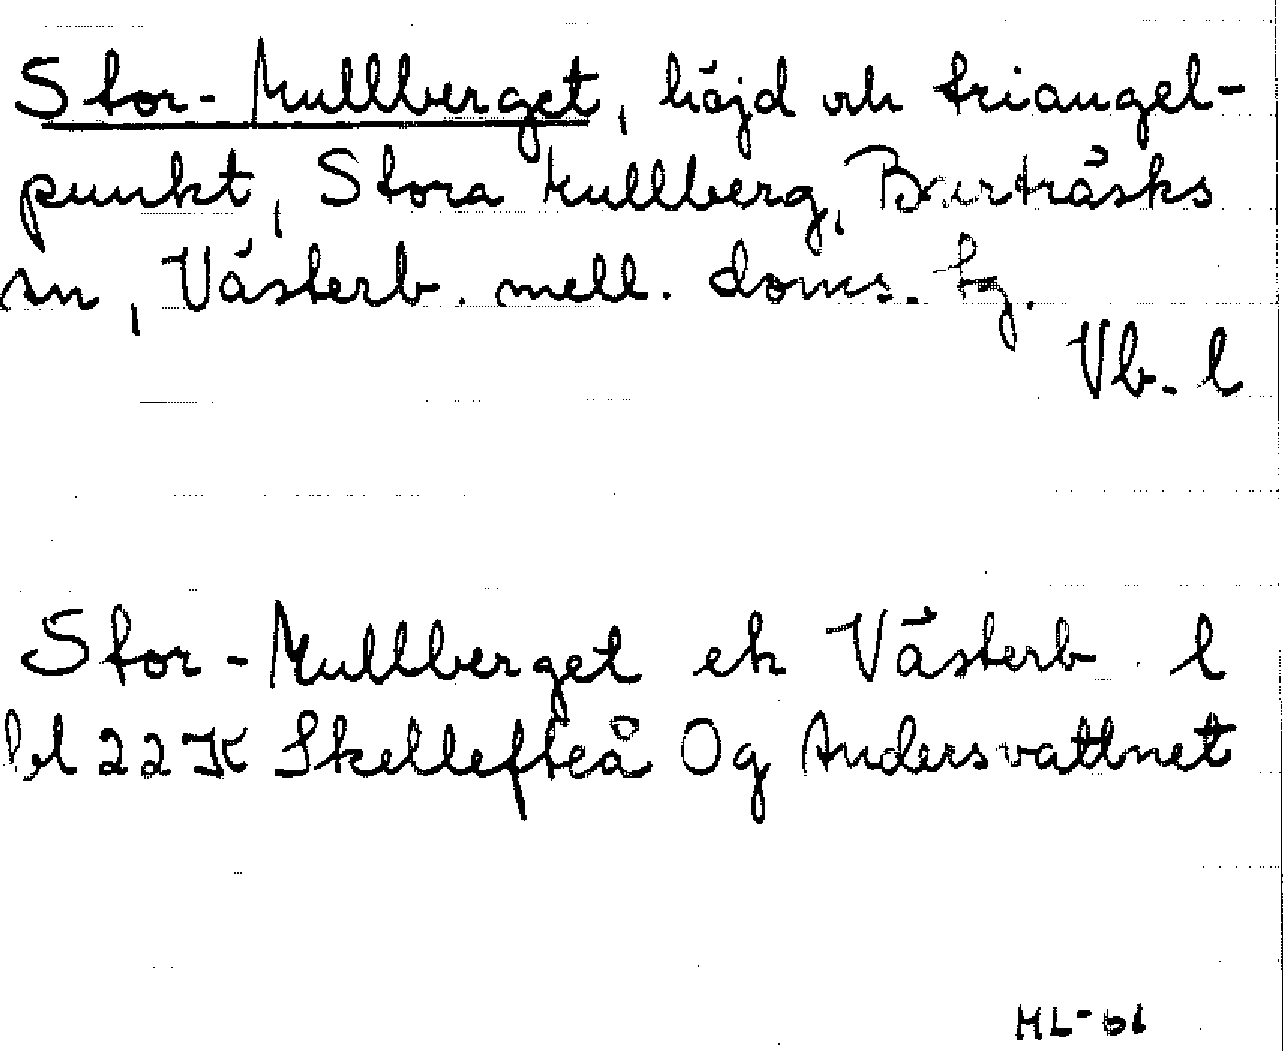 Stor-Mullberget, höjd och triangel-
punkt, Stora Mullberg, Burträsks
sn, Västerb. mell. doms. tg.
Vb. l
Stor-Mullberget ek Västerb. l
bl 22 K Skellefteå Og Andersvattnet
HL-61